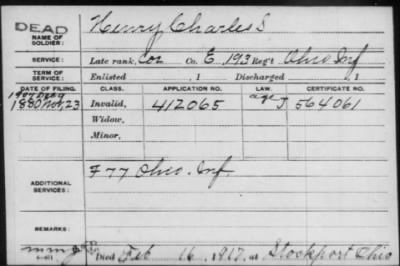 DEAD
NAME OF SOLDIER: Henry Charles S
SERVICE: Late rank, Cor Co. E, 193 Reg't Ohio Inf
TERM OF SERVICE: Enlisted , 1 Discharged , 1
DATE OF FILING. CLASS. APPLICATION NO. LAW. CERTIFICATE NO.
1880 Nov, 23 Invalid, 412065 age J 564061
Widow,
Minor,
ADDITIONAL SERVICES: F 77 Ohio. Inf.
REMARKS:
Died Feb 16, 1917, at Stockport Ohio